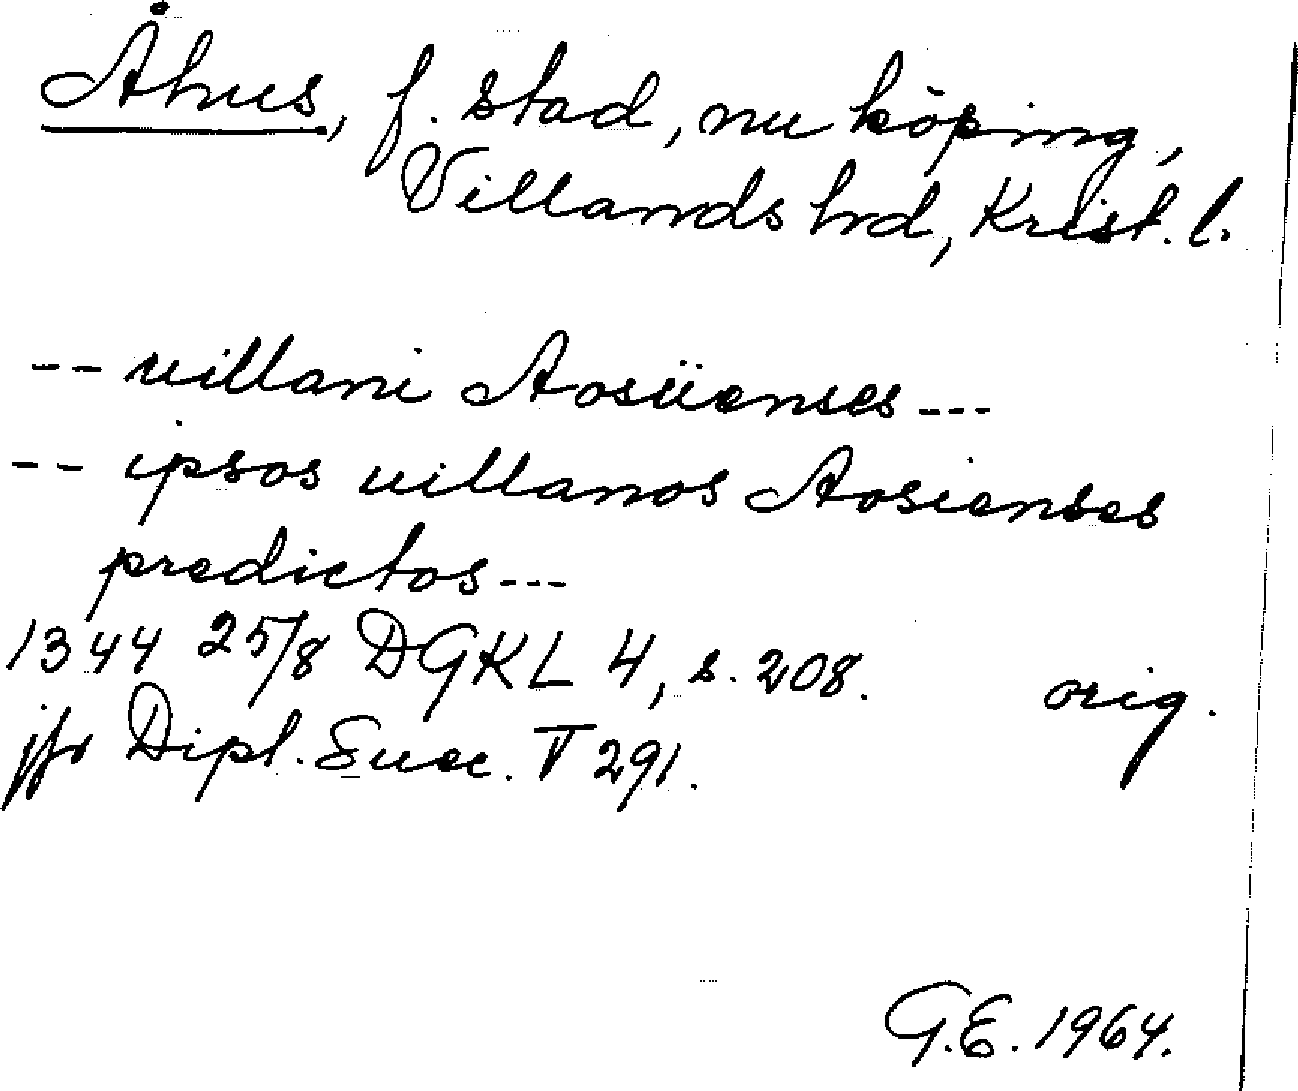 Åhus, f. stad, nu köping,
Villands hrd, Krist. l.
-- villani Aosiienses ---
-- ipsos villanos Aosienses
predictos ---
1344 25/8 DGKL 4, s. 208. orig.
jfr Dipl. Suec. V 291.
G.E. 1964.